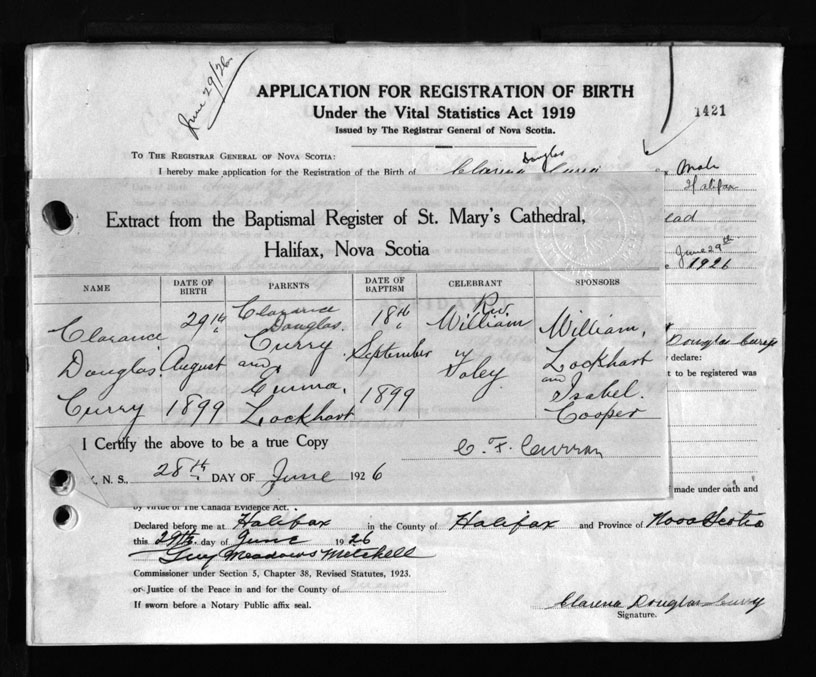 June 29/26
APPLICATION FOR REGISTRATION OF BIRTH
Under the Vital Statistics Act 1919
Issued by The Registrar General of Nova Scotia.
1421
TO THE REGISTRAR GENERAL OF NOVA SCOTIA:
Douglas
I hereby make application for the Registration of the Birth of Male
Halifax
June 29th
1926
Extract from the Baptismal Register of St. Mary's Cathedral,
Halifax, Nova Scotia
NAME DATE OF BIRTH PARENTS DATE OF BAPTISM CELEBRANT SPONSORS
Clarance Douglas Curry
29th August 1899
Clarance Douglas Curry and Emma Lockhart
18th September 1899
Rev. William Foley
William Lockhart and Isabel Cooper
I Certify the above to be a true Copy
C. F. Curran
N. S., 28th DAY OF June 1926
Douglas
declare:
t to be registered was
made under oath and
by virtue of The Canada Evidence Act.
Declared before me at Halifax in the County of Halifax and Province of Nova Scotia
this 29th day of June 1926
Guy Meadows Mitchell
Commissioner under Section 5, Chapter 38, Revised Statutes, 1923.
or Justice of the Peace in and for the County of
If sworn before a Notary Public affix seal.
Clarence Douglas Curry
Signature.